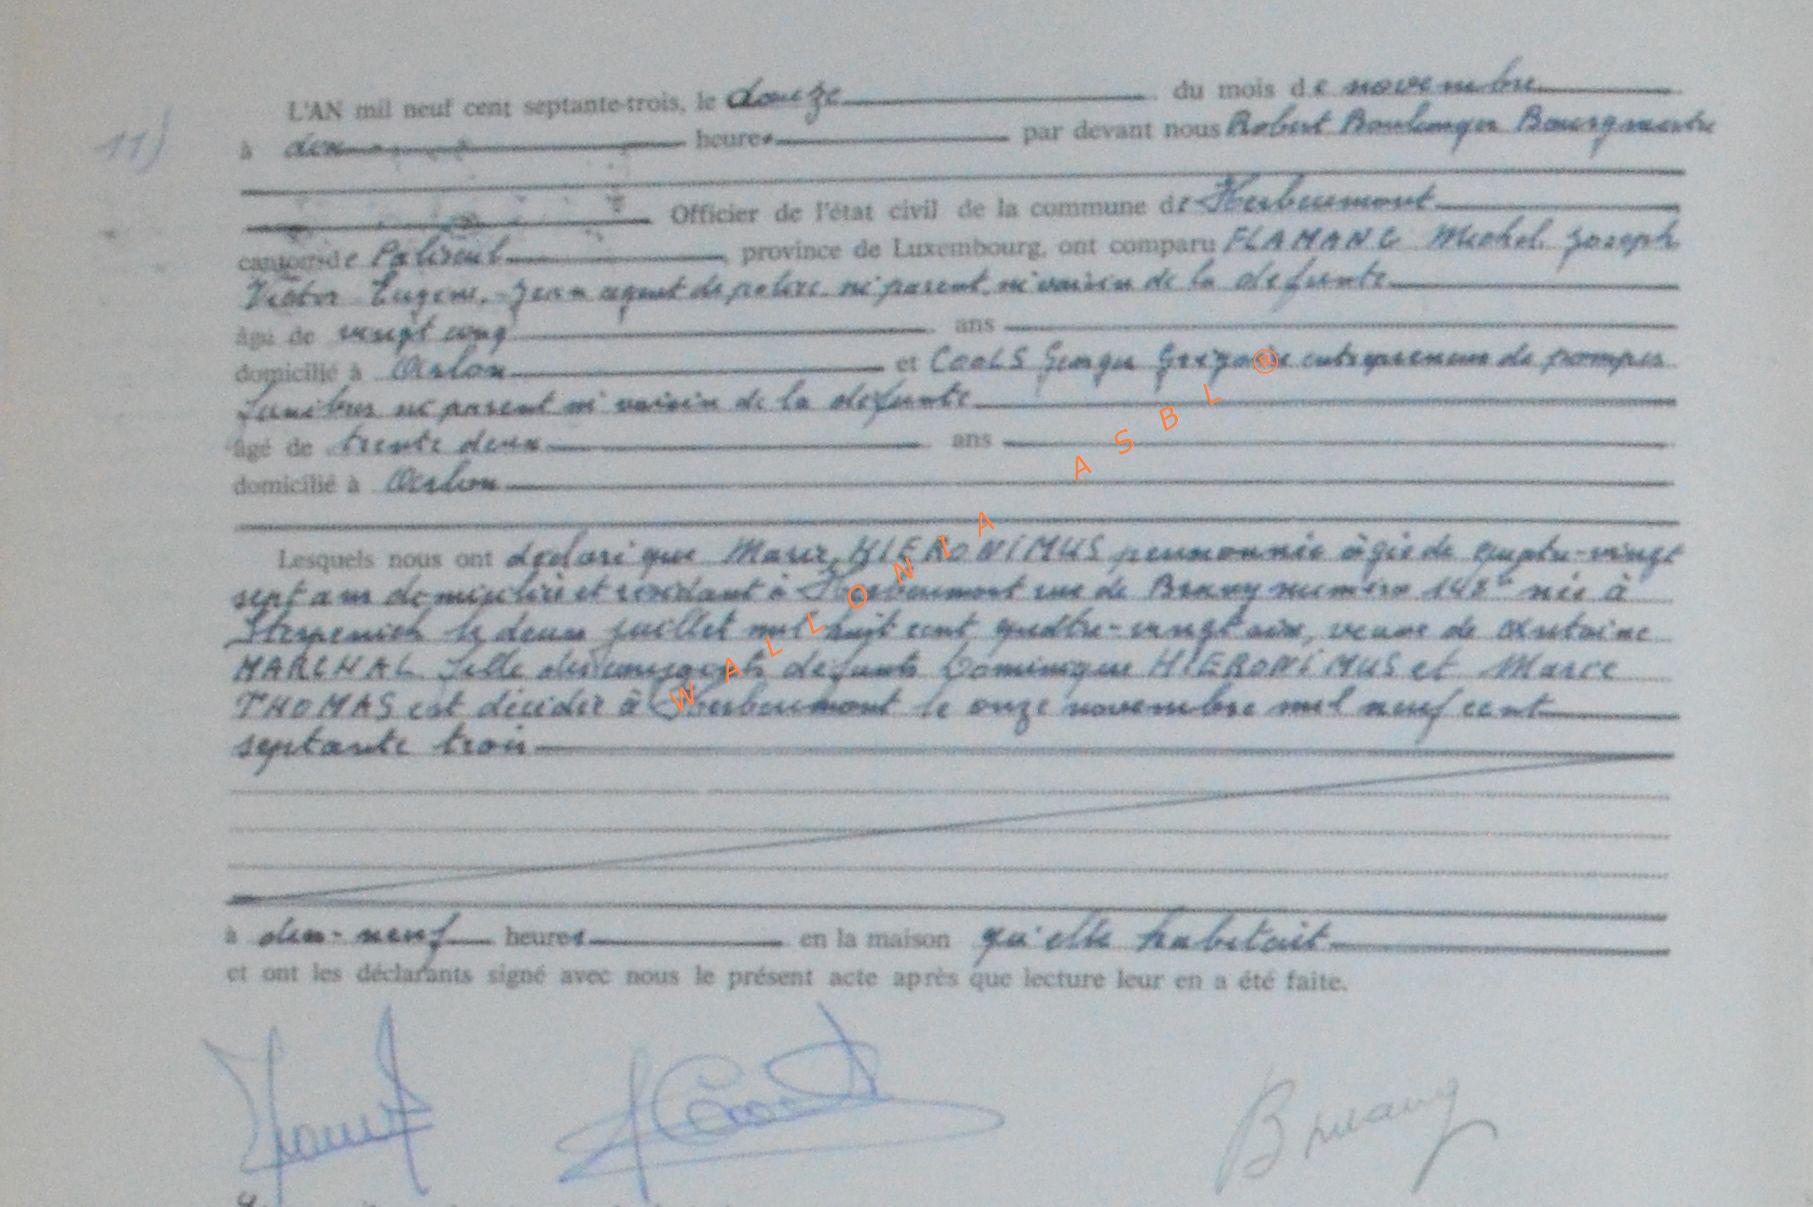 11)
L'AN mil neuf cent septante-trois, le douze du mois de novembre
à dix heures par devant nous Robert Boulanger Bourgmestre
Officier de l'état civil de la commune de Herbeumont
canton de Paliseul, province de Luxembourg, ont comparu FLAMANG Michel Joseph
Victor Eugène Jean agent de police ni parent ni voisin de la défunte
âgé de vingt cinq ans
domicilié à Arlon et COOLS Georges Grégoire entrepreneur de pompes
funèbres ni parent ni voisin de la défunte
âgé de trente deux ans
domicilié à Arlon
Lesquels nous ont déclaré que Marie HIERONIMUS pensionnée âgée de quatre-vingt
sept ans domiciliée et résidant à Herbeumont rue de numéro née à
Sterpenich le deux juillet mil huit cent quatre-vingt six, veuve de Antoine
MARCHAL fille des conjoints défunts Dominique HIERONIMUS et Marie
THOMAS est décédée à Herbeumont le onze novembre mil neuf cent
septante trois
à dix-neuf heures en la maison qu'elle habitait
et ont les déclarants signé avec nous le présent acte après que lecture leur en a été faite.
WALLONIA ASBL ®